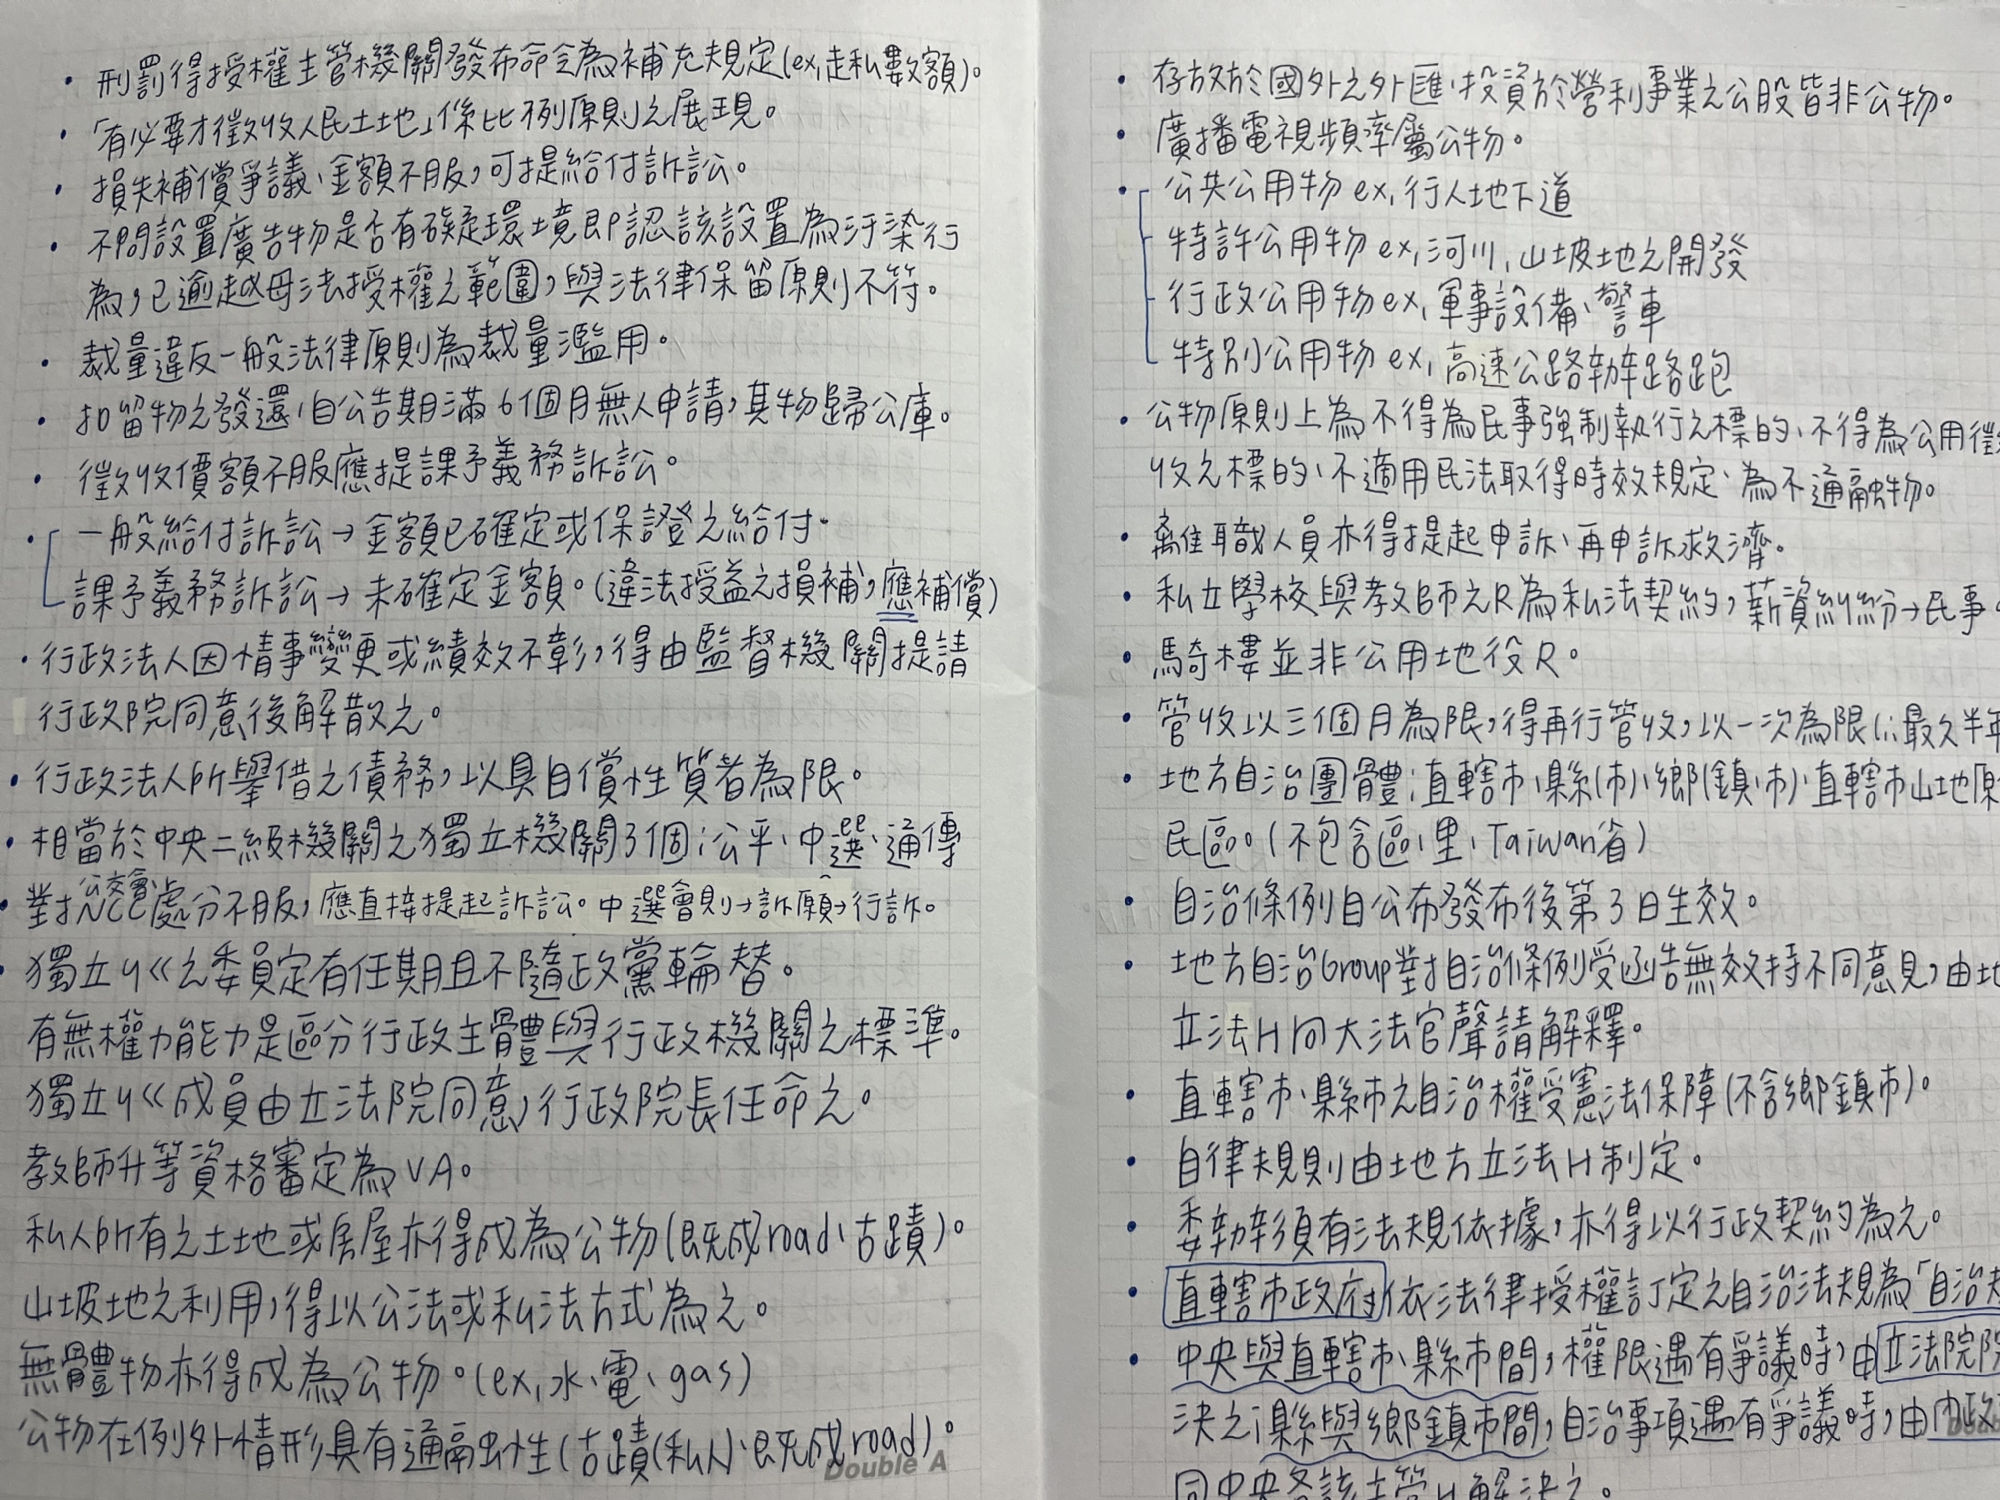 • 刑罰得授權主管機關發布命令為補充規定(ex,走私數額)。
• 「有必要才徵收人民土地」係比例原則之展現。
• 損失補償爭議、金額不服,可提給付訴訟。
• 不問設置廣告物是否有礙環境即認該設置為汙染行
為,已逾越母法授權之範圍,與法律保留原則不符。
• 裁量違反一般法律原則為裁量濫用。
• 扣留物之發還,自公告期滿6個月無人申請,其物歸公庫。
• 徵收價額不服應提課予義務訴訟。
• 一般給付訴訟→金額已確定或保證之給付.
課予義務訴訟→未確定金額。(違法授益之損補,應補償)
• 行政法人因情事變更或績效不彰,得由監督機關提請
行政院同意後解散之。
• 行政法人所舉借之債務,以具自償性質者為限。
• 相當於中央二級機關之獨立機關3個:公平、中選、通傳
• 對NCC公交會處分不服,應直接提起訴訟。中選會則→訴願→行訴。
• 獨立ㄐ巜之委員定有任期且不隨政黨輪替。
有無權力能力是區分行政主體與行政機關之標準。
獨立ㄐ巜成員由立法院同意,行政院長任命之。
教師升等資格審定為VA。
私人所有之土地或房屋亦得成為公物(既成road、古蹟)。
山坡地之利用,得以公法或私法方式為之。
無體物亦得成為公物。(ex,水、電、gas)
公物在例外情形具有通融性(古蹟(私人)、既成road)。
Double A
• 存放於國外之外匯、投資於營利事業之公股皆非公物。
• 廣播電視頻率屬公物。
• 公共公用物 ex,行人地下道
特許公用物 ex,河川,山坡地之開發
行政公用物 ex,軍事設備、警車
特別公用物 ex,高速公路辦路跑
• 公物原則上為不得為民事強制執行之標的、不得為公用徵
收之標的、不適用民法取得時效規定、為不通融物。
• 離職人員亦得提起申訴、再申訴救濟。
• 私立學校與教師之R為私法契約,薪資糾紛→民事
• 騎樓並非公用地役R。
• 管收以三個月為限,得再行管收,以一次為限(∴最久半年
• 地方自治團體:直轄市、縣(市)、鄉(鎮、市)、直轄市山地原住
民區。(不包含區、里、Taiwan省)
• 自治條例自公布發布後第3日生效。
• 地方自治Group對自治條例受函告無效持不同意見,由地
立法H向大法官聲請解釋。
• 直轄市、縣市之自治權受憲法保障(不含鄉鎮市)。
• 自律規則由地方立法H制定。
• 委辦須有法規依據,亦得以行政契約為之。
• 直轄市政府依法律授權訂定之自治法規為「自治規
• 中央與直轄市、縣市間,權限遇有爭議時,由立法院院
決之;縣與鄉鎮市間,自治事項遇有爭議時,由內政
同中央各該主管H解決之。